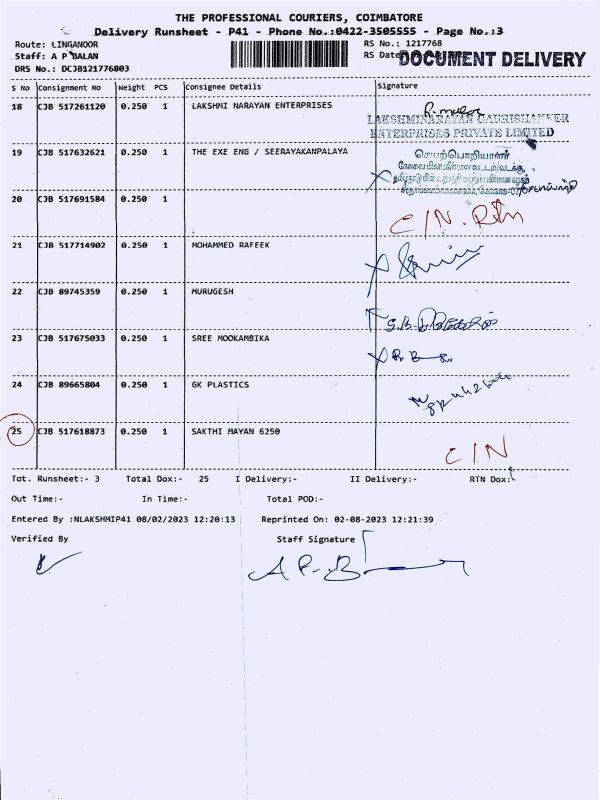 THE PROFESSIONAL COURIERS, COIMBATORE
Delivery Runsheet - P41 - Phone No.:0422-3505555 - Page No.:3
Route: LINGANOOR RS No.: 1217768
Staff: A P BALAN RS Date DOCUMENT DELIVERY
DRS No.: DCJB121776803
S No Consignment No Weight PCS Consignee Details Signature
18 CJB 517261120 0.250 1 LAKSHMI NARAYAN ENTERPRISES
LAKSHMINARAYAN GAURISHANKER
ENTERPRISES PRIVATE LIMITED
19 CJB 517632621 0.250 1 THE EXE ENG / SEERAYAKANPALAYA
செயற்பொறியாளர்
20 CJB 517691584 0.250 1
C/N. Rtn
21 CJB 517714902 0.250 1 MOHAMMED RAFEEK
22 CJB 89745359 0.250 1 MURUGESH
23 CJB 517675033 0.250 1 SREE MOOKAMBIKA
24 CJB 89665804 0.250 1 GK PLASTICS
25 CJB 517618873 0.250 1 SAKTHI MAYAN 6250
C/N
Tot. Runsheet:- 3 Total Dox:- 25 I Delivery:- II Delivery:- RTN Dox:
Out Time:- In Time:- Total POD:-
Entered By :NLAKSHMIP41 08/02/2023 12:20:13 Reprinted On: 02-08-2023 12:21:39
Verified By Staff Signature
A P. B